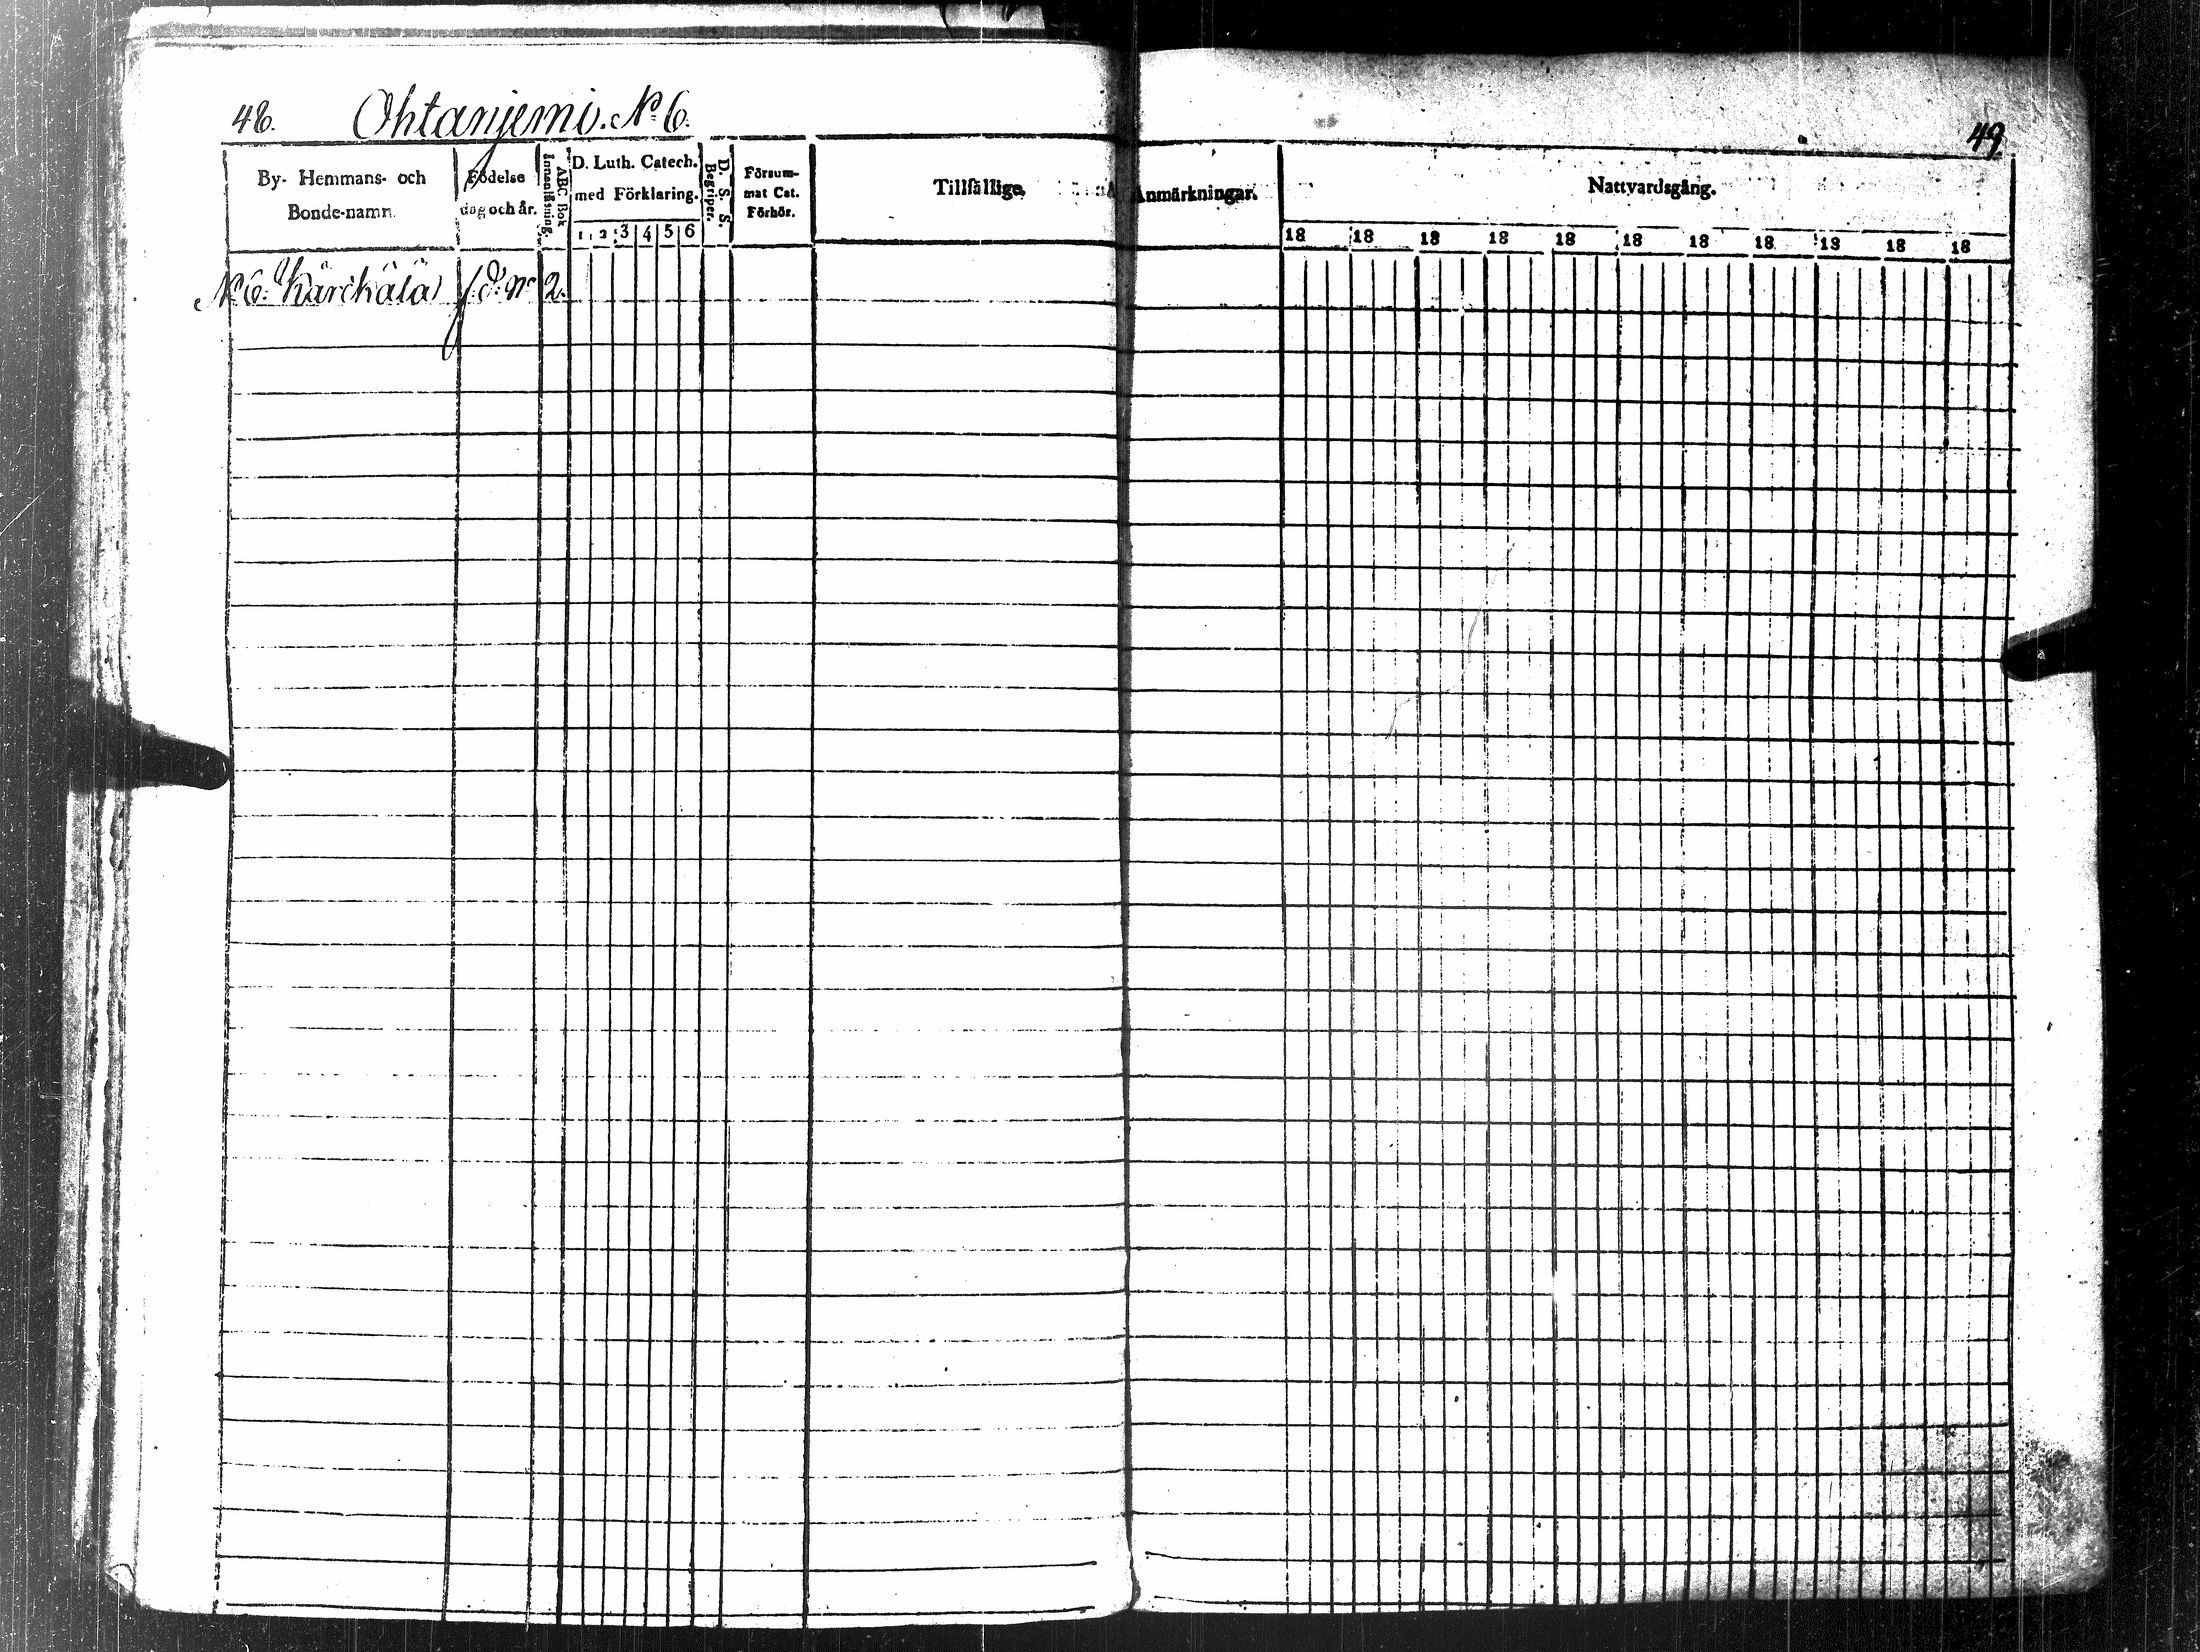 48. Ohtanjemi. No 6.
49.
By- Hemmans- och
Bonde-namn.
Födelse
dag och år.
ABC Bok
Innanläsning.
D. Luth. Catech.
med Förklaring.
1 2 3 4 5 6
D. S. S.
Begriper.
Försum-
mat Cat.
Förhör.
Tillfällige Anmärkningar.
Nattvardsgång.
18 18 18 18 18 18 18 18 18 18 18
No 6. Kärckälä 2.